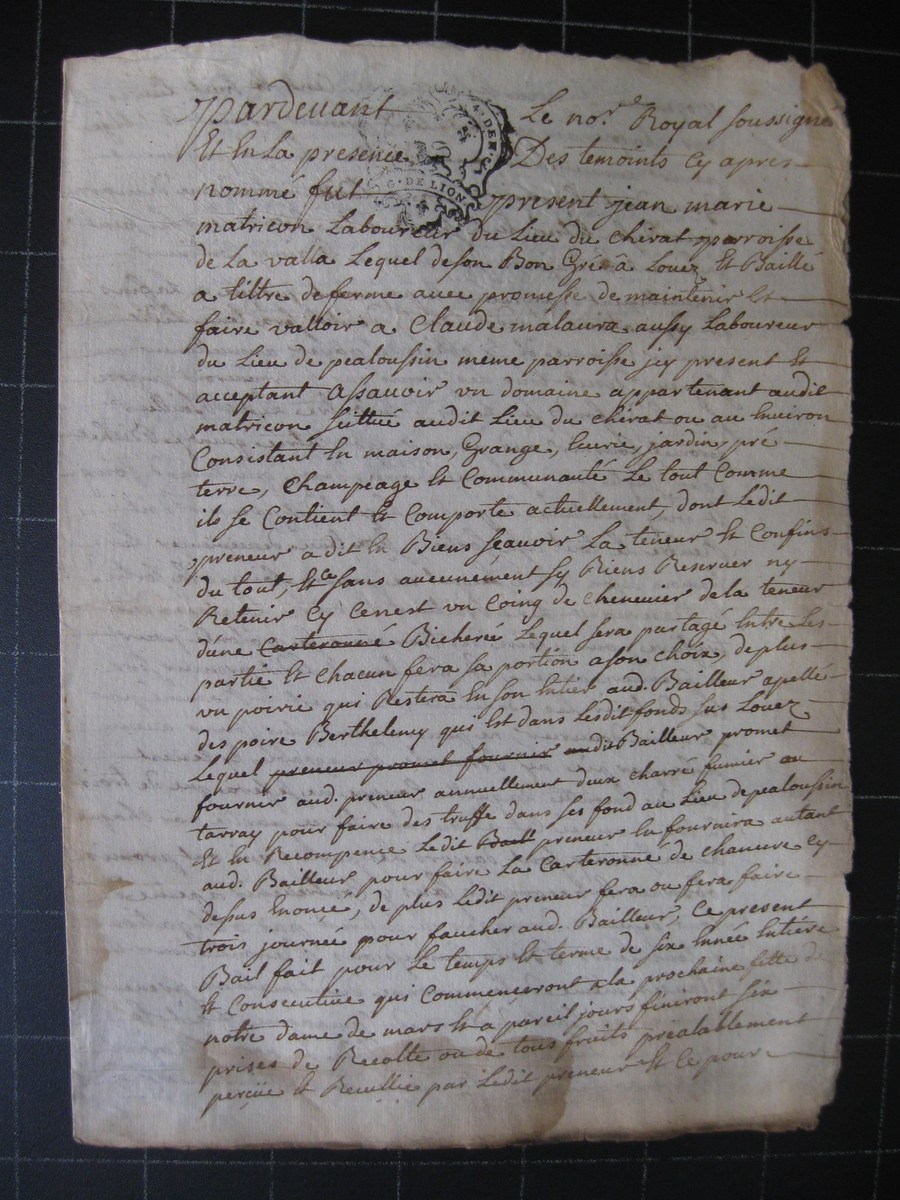 pardevant Le no.re Royal soussigné
Et En La presence Des temoints Cy apres
nommé fut present jean marie
matricon Laboureur du Lieu du chirat parroisse
de La valla Lequel de son Bon Gré â Louez Et Baillé
a tiltre de ferme avec promesse de maintenir Et
faire valloir a Claude malaura aussy Laboureur
du Lieu de pealoussin meme parroisse jcy present Et
acceptant assavoir un domaine appartenant audit
matricon sittué audit Lieu du chirat ou au Environ
Consistant En maison, Grange, Ecurie, jardin, pré
terre, Champeage Et Communauté Le tout Comme
ils se Contient Et Comporte actuellement, dont Ledit
preneur a dit En Biens sçauoir La teneur Et Confins
du tout, Et Ce sans aucunement sy Riens Reserver ny
Retenir Cy Cenest un Coing de chenevier de la teneur
d'une Carteronné Bicherée Lequel sera partagé Entre Les
partie Et Chacun fera sa portion a son choix, de plus
un poirié qui Restera En son Entier aud. Bailleur apellé
des poire Berthelemy qui Est dans Lesdit fonds sus Louez
Lequel preneur promet fournir audit Bailleur promet
fournir aud. preneur annuellement deux charré fumier au
tarray pour faire des truffe dans ses fond au Lieu de pealoussin
Et En Recompence Ledit Baill preneur En fournira autant
aud. Bailleur pour faire La Carteronné de chanevre Cy
desus Enoncé, de plus Ledit preneur fera ou fera faire
trois journée pour faucher aud. Bailleur, Ce present
Bail fait pour Le temps Et terme de six Année Entiére
Et Consecutive qui Commenceront a la prochaine fette de
notre dame de mars Et a pareil jours finiront six
prises de Recolte ou de tous fruits préalablement
perçüe Et Recullie par Ledit preneur Et Ce pour
G. DE LION
4. DEN.